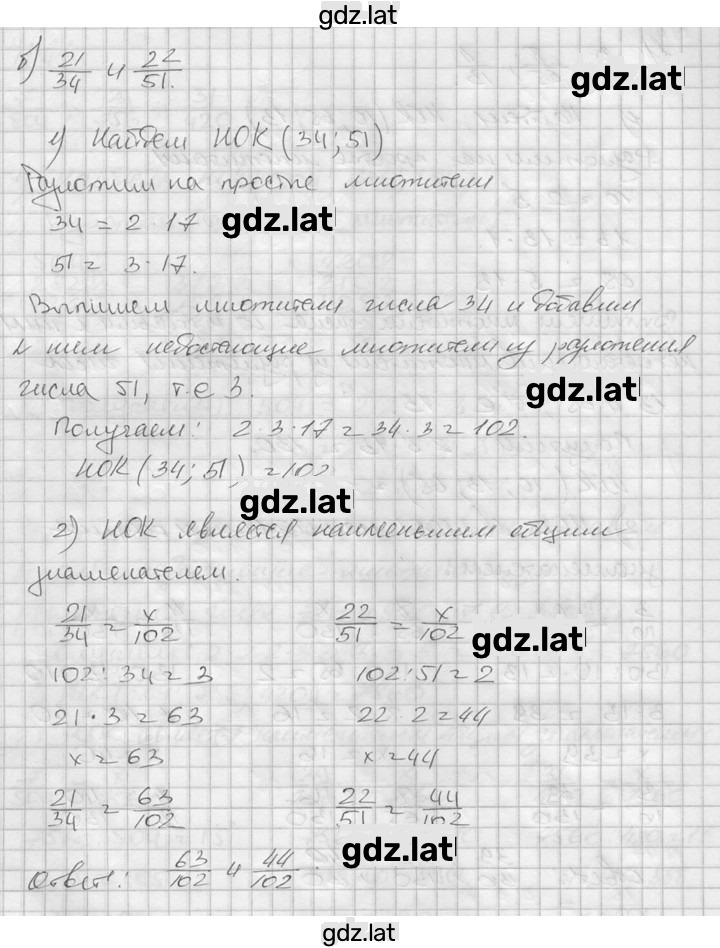 gdz.lat
б) 21/34 и 22/51.
gdz.lat
1) Найдем НОК (34; 51)
Разложим на простые множители
34 = 2 · 17
gdz.lat
51 = 3 · 17.
Выпишем множители числа 34 и добавим
к ним недостающие множители из разложения
числа 51, т.е 3.
gdz.lat
Получаем: 2 · 3 · 17 = 34 · 3 = 102.
НОК (34; 51) = 102
gdz.lat
2) НОК является наименьшим общим
знаменателем.
21/34 = x/102 22/51 = x/102
gdz.lat
102 : 34 = 3 102 : 51 = 2
21 · 3 = 63 22 · 2 = 44
x = 63 x = 44
21/34 = 63/102 22/51 = 44/102
gdz.lat
Ответ: 63/102 и 44/102.
gdz.lat